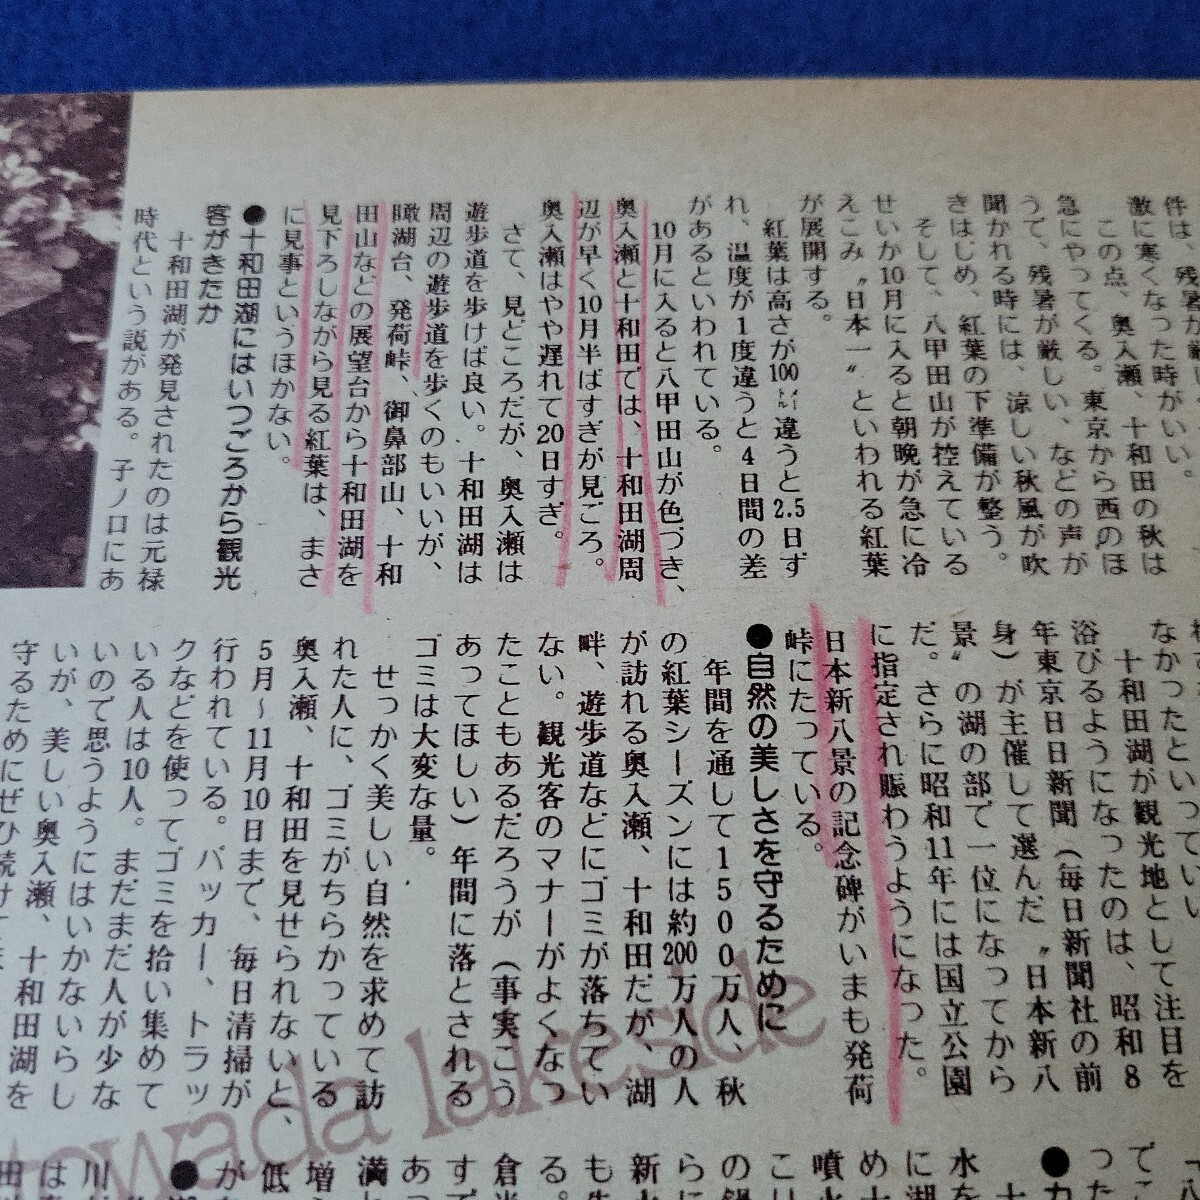 激に寒くなった時がいい。
この点、奥入瀬、十和田の秋は
急にやってくる。東京から西のほ
うで、残暑が厳しい、などの声が
聞かれる時には、涼しい秋風が吹
きはじめ、紅葉の下準備が整う。
そして、八甲田山が控えている
せいか10月に入ると朝晩が急に冷
えこみ〝日本一〟といわれる紅葉
が展開する。
紅葉は高さが100㍍違うと2.5日ず
れ、温度が1度違うと4日間の差
があるといわれている。
10月に入ると八甲田山が色づき、
奥入瀬と十和田では、十和田湖周
辺が早く10月半ばすぎが見ごろ。
奥入瀬はやや遅れて20日すぎ。
さて、見どころだが、奥入瀬は
遊歩道を歩けば良い。十和田湖は
周辺の遊歩道を歩くのもいいが、
瞰湖台、発荷峠、御鼻部山、十和
田山などの展望台から十和田湖を
見下ろしながら見る紅葉は、まさ
に見事というほかない。
●十和田湖にはいつごろから観光
客がきたか
十和田湖が発見されたのは元禄
時代という説がある。子ノ口にあ
なかったといっていい
十和田湖が観光地として注目を
浴びるようになったのは、昭和8
年東京日日新聞（毎日新聞社の前
身）が主催して選んだ〝日本新八
景〟の湖の部で一位になってから
だ。さらに昭和11年には国立公園
に指定され賑わうようになった。
日本新八景の記念碑がいまも発荷
峠にたっている。
●自然の美しさを守るために
年間を通して1500万人、秋
の紅葉シーズンには約200万人の人
が訪れる奥入瀬、十和田だが、湖
畔、遊歩道などにゴミが落ちてい
ない。観光客のマナーがよくなっ
たこともあるだろうが（事実こう
あってほしい）年間に落とされる
ゴミは大変な量。
せっかく美しい自然を求めて訪
れた人に、ゴミがちらかっている
奥入瀬、十和田を見せられないと、
5月〜11月10日まで、毎日清掃が
行われている。パッカー、トラッ
クなどを使ってゴミを拾い集めて
いる人は10人。まだまだ人が少な
いので思うようにはいかないらし
いが、美しい奥入瀬、十和田湖を
守るためにぜひ続けて
towada lakeside